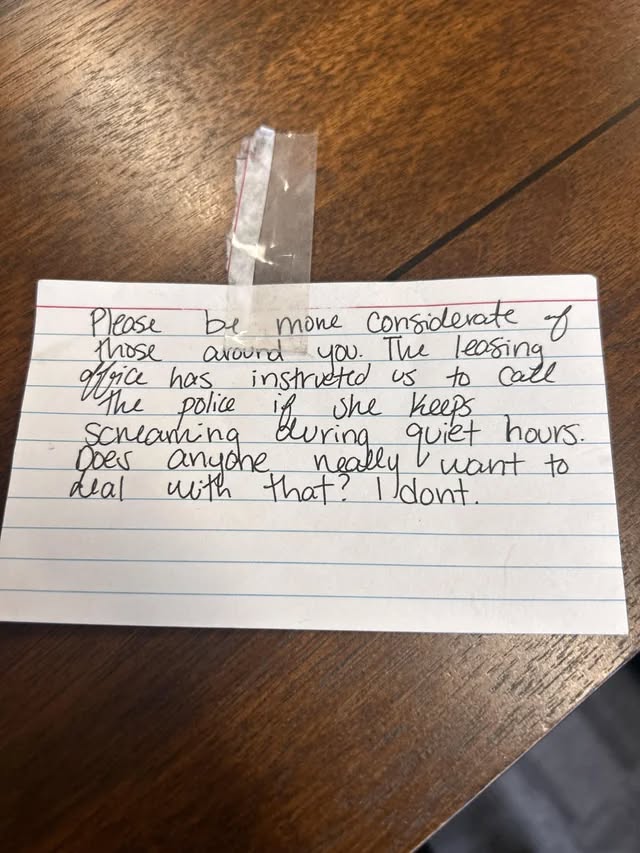 Please be more considerate of
those around you. The leasing
office has instructed us to call
the police if she keeps
screaming during quiet hours.
Does anyone really want to
deal with that? I dont.